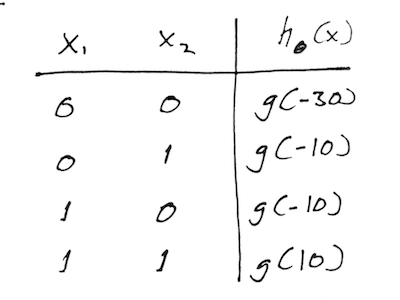 x₁ x₂ h₀(x)
0 0 g(-30)
0 1 g(-10)
1 0 g(-10)
1 1 g(10)